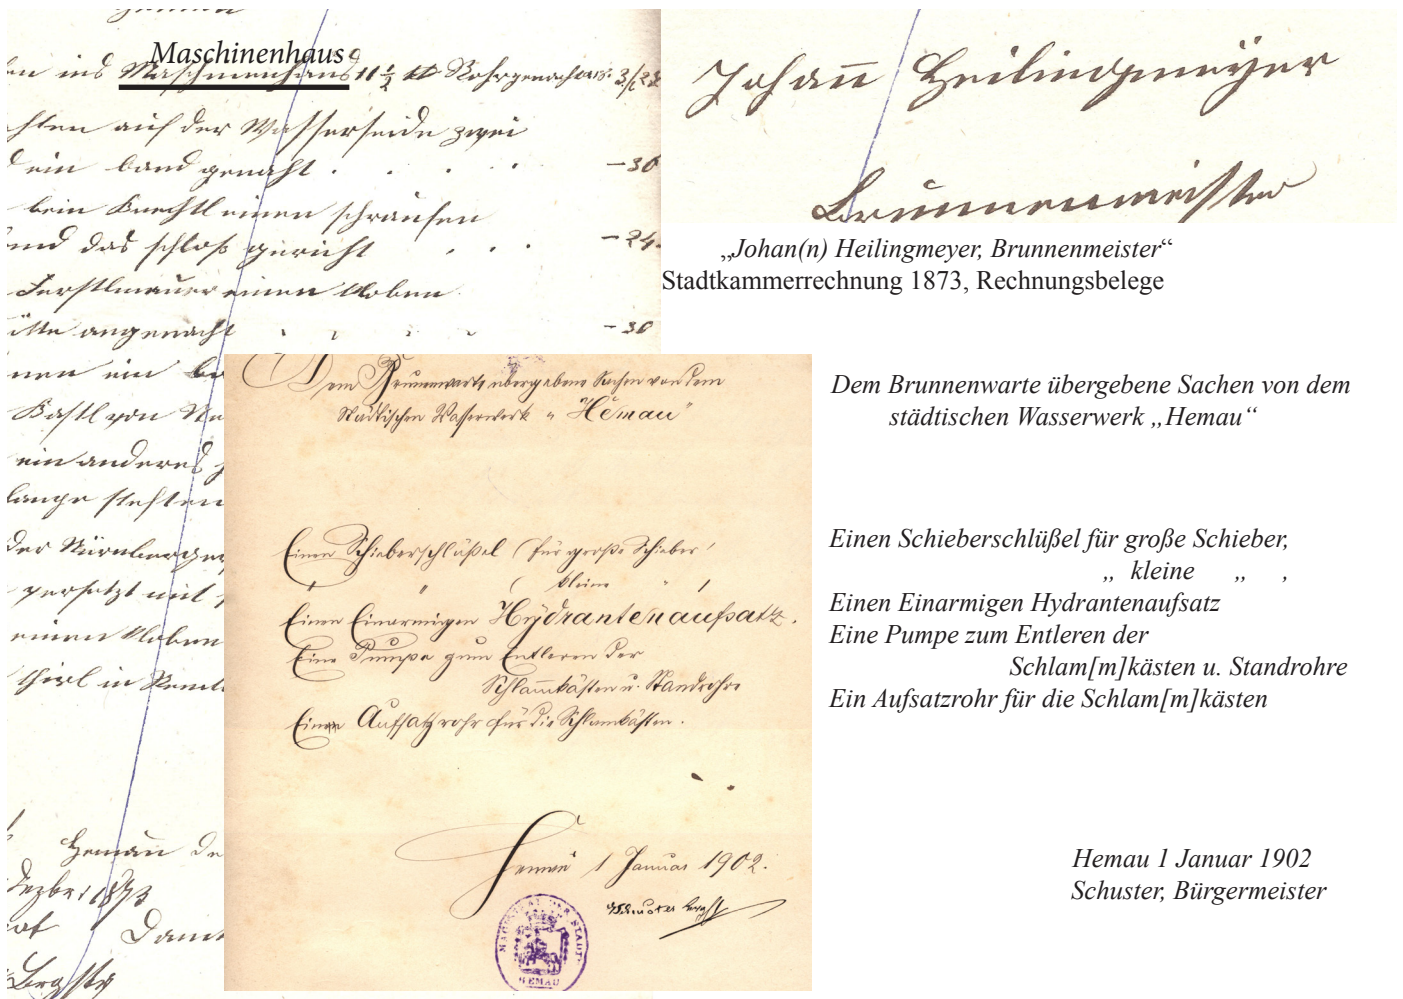 Maschinenhaus
ins Maschinenhaus 11 ½ Rohrgemacht
auf der Wasserseide zwei
ein band gemacht . . . . —36
beim Knechtl einen schraufen
und das schloß gericht . . . —24
Ferstlmauer einen Kloben
angemacht . . . . —36
ein
Kastl von
ein anderes
lange
der Nürnberger
gersetzt mit
einen Kloben
in
Hemau
Dezbr 1873
Johann Heilingmeÿer
Brunnenmeister
„Johan(n) Heilingmeyer, Brunnenmeister“
Stadtkammerrechnung 1873, Rechnungsbelege
Dem Brunnenwarte übergebene Sachen von dem
Städtischen Wasserwerk „Hemau“
Einen Schieberschlüßel (für große Schieber)
„ „ ( kleine „ )
Einen Einarmigen Hÿdrantenaufsatz.
Eine Pumpe zum Entleren der
Schlam̅kästen u. Standrohre
Ein Aufsatzrohr für die Schlamkästen.
Hemau 1 Januar 1902.
Schuster Brgstr
MAGISTRAT DER STADT
HEMAU
Dem Brunnenwarte übergebene Sachen von dem
städtischen Wasserwerk „Hemau“
Einen Schieberschlüßel für große Schieber,
„ kleine „ ,
Einen Einarmigen Hydrantenaufsatz
Eine Pumpe zum Entleren der
Schlam[m]kästen u. Standrohre
Ein Aufsatzrohr für die Schlam[m]kästen
Hemau 1 Januar 1902
Schuster, Bürgermeister